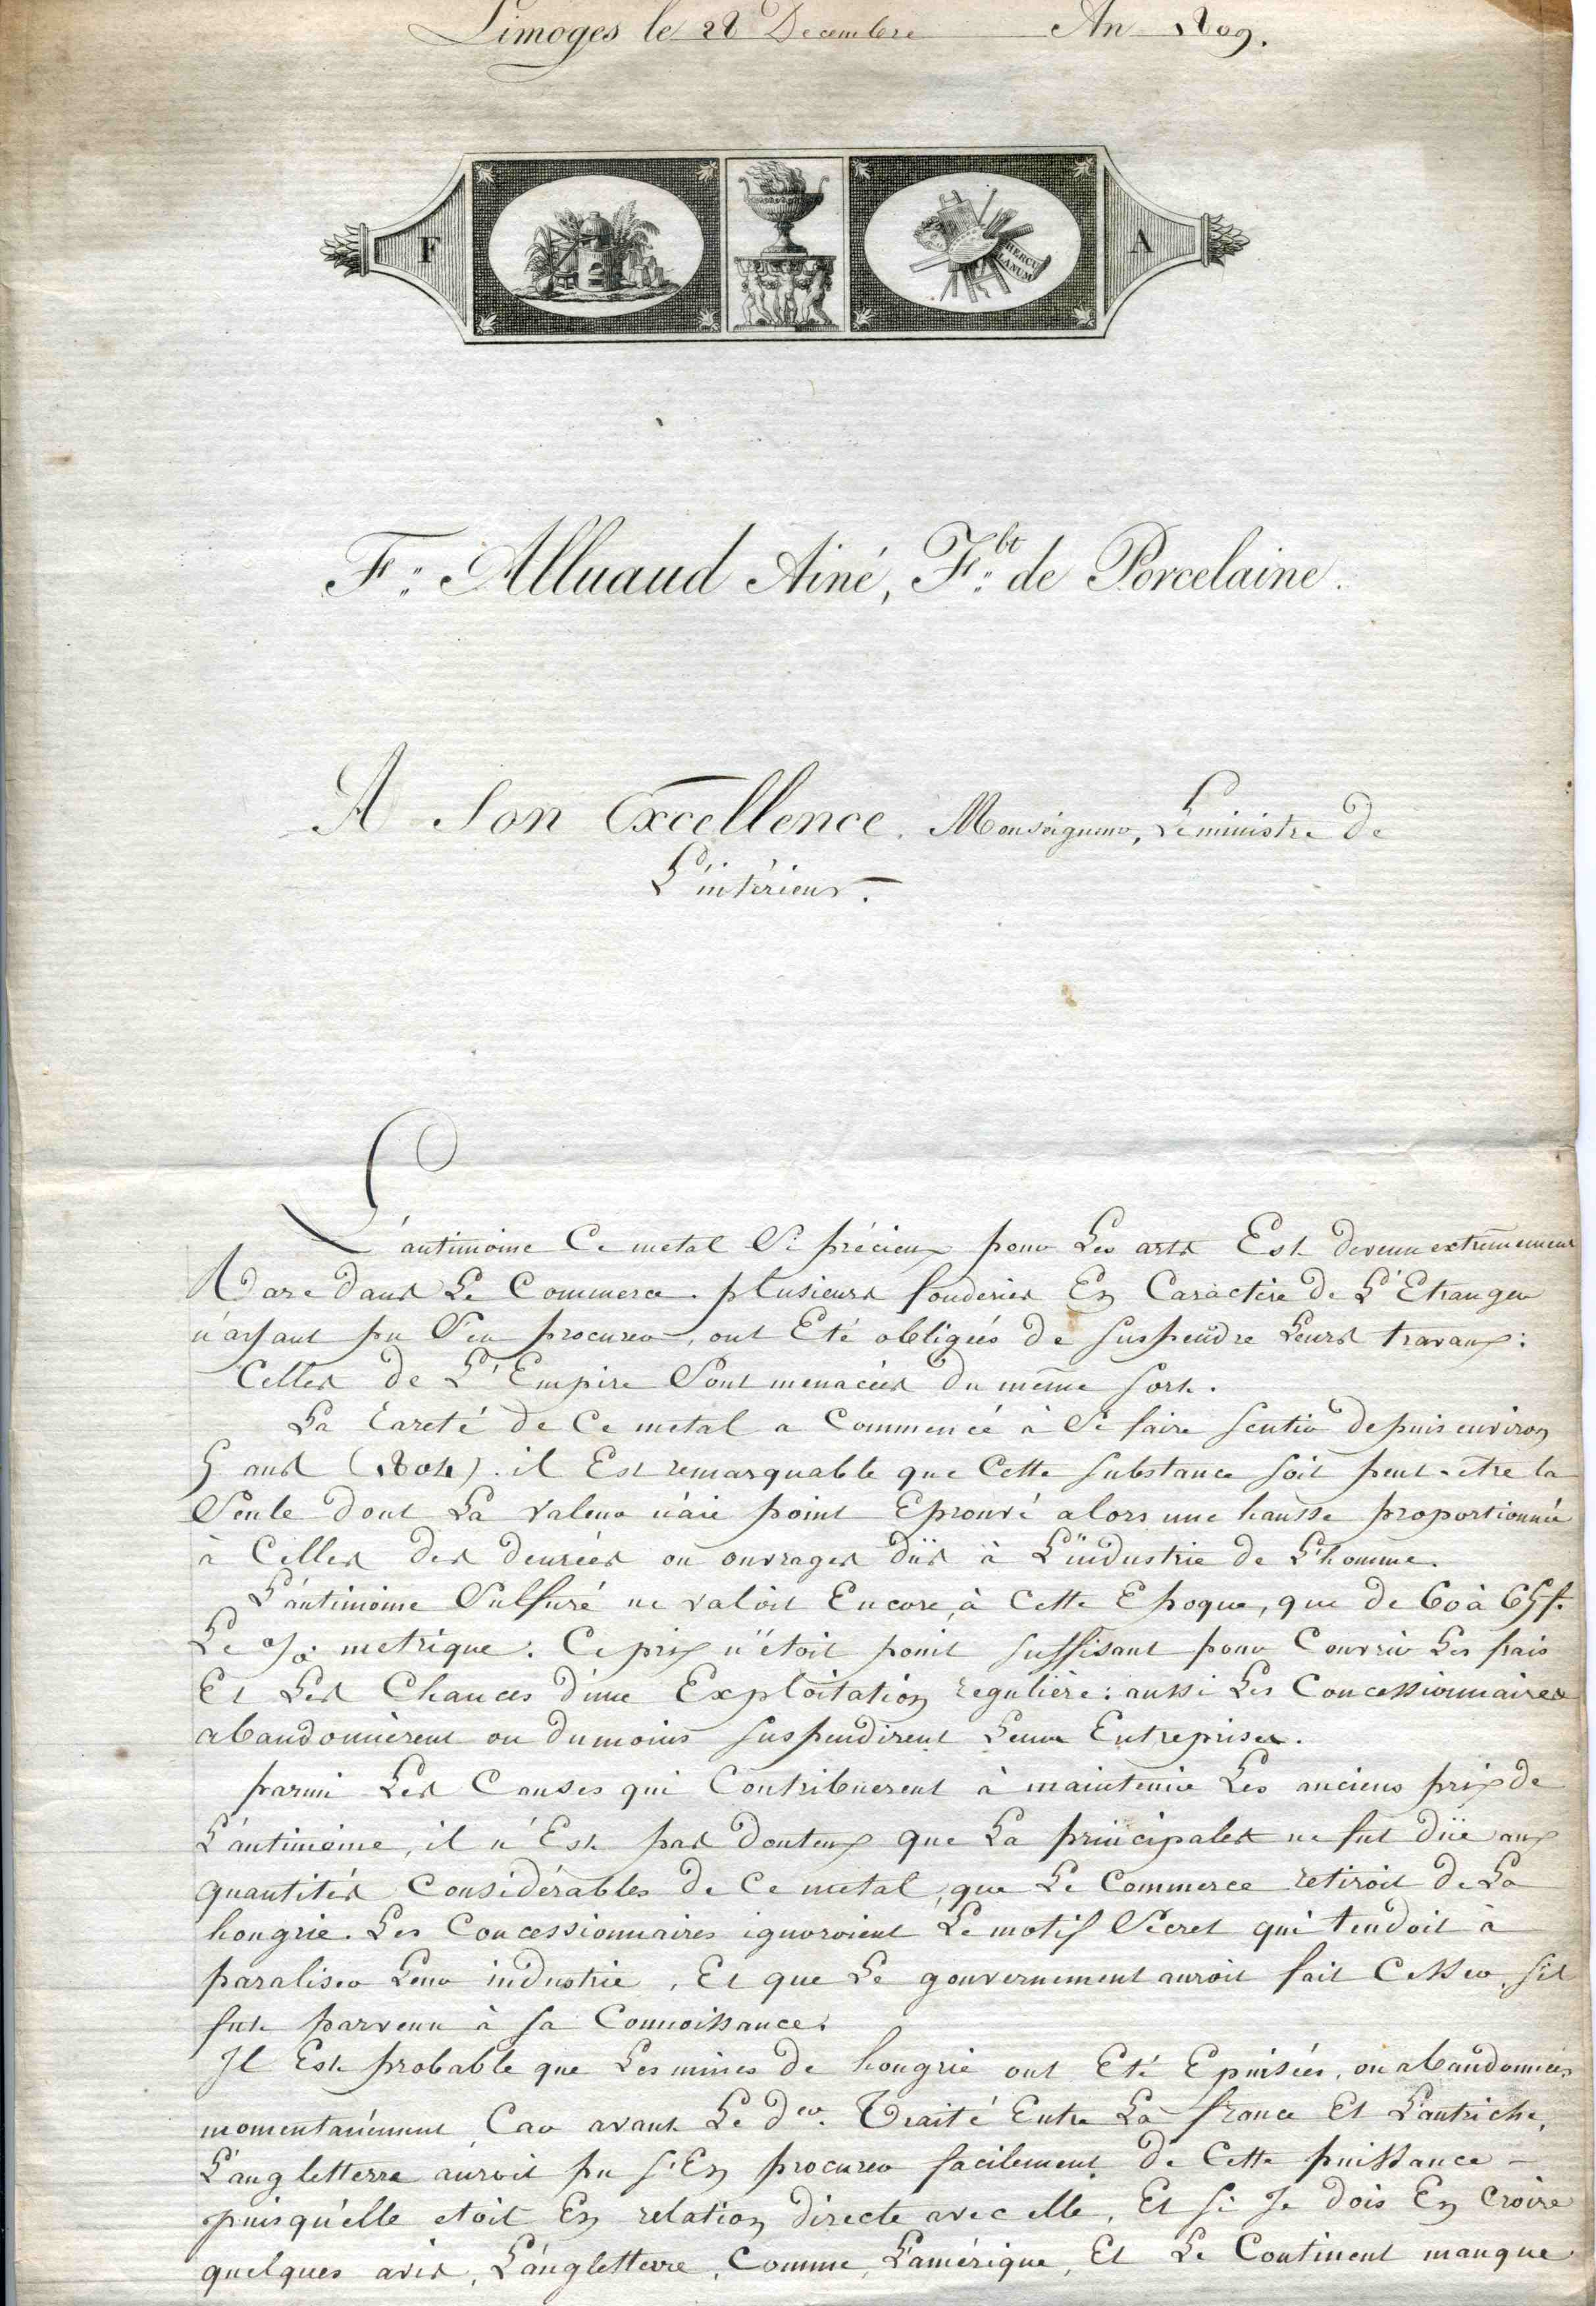 Limoges le 28 Decembre An 1809.
F A
HERCU
LANUM
F. Alluaud Ainé, F.bt de Porcelaine.
A Son Excellence. Monseigneur, Le ministre De
L'intérieur.
L'antimoine Ce metal Si précieux pour Les arts Est devenu extremement
Rare dans Le Commerce. plusieurs fonderies En Caractère De L'Etranger
n'ayant pu S'en procurer, ont Eté obligées De suspendre Leurs travaux:
Celles de L'Empire Sont menacées Du même sort.
La Rareté de Ce metal a Commencé à Se faire sentir depuis environ
5 ans (1804). il Est remarquable que Cette substance soit peut-etre la
Seule dont La valeur n'aie point Eprouvé alors une hausse proportionnée
à Celles des denrées ou ouvrages dûs à L'industrie de L'homme.
L'antimoine Sulfuré ne valoit Encore, à Cette Epoque, que De 60 à 65 f.
Le % metrique. Ce prix n'étoit point suffisant pour Couvrir Les frais
Et Les Chances d'une Exploitation regulière: aussi Les Concessionnaires
abandonnèrent ou dumoins suspendirent Leurs Entreprises.
parmi Les Causes qui Contribuerent à maintenir Les anciens prix de
L'antimoine, il n'Est pas Douteux que La principales ne fut dûe aux
quantités Considérables De Ce metal, que Le Commerce retiroit De La
hongrie. Les Concessionnaires ignoroient Le motif Secret qui tendoit à
paraliser Leur industrie, Et que Le gouvernement auroit fait Cesser, s'il
fut parvenu à sa Connoissance.
Il Est probable que Les mines De hongrie ont Eté Epuisées, ou abandonnées
momentanément, Car avant Le Der. Traité Entre La france Et L'autriche,
L'angletterre auroit pu s'En procurer facilement De Cette puissance -
puisqu'elle etoit En relation Directe avec elle, Et si Je dois En Croire
quelques avis, L'angletterre, Comme, L'amérique, Et Le Continent manque